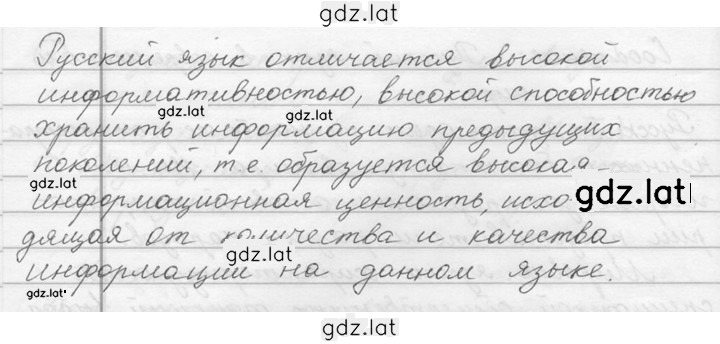 gdz.lat
Русский язык отличается высокой
информативностью, высокой способностью
gdz.lat gdz.lat
хранить информацию предыдущих
поколений, т.е. образуется высокая
gdz.lat
информационная ценность, исхо-
gdz.lat
дящая от количества и качества
gdz.lat
информации на данном языке.
gdz.lat
gdz.lat